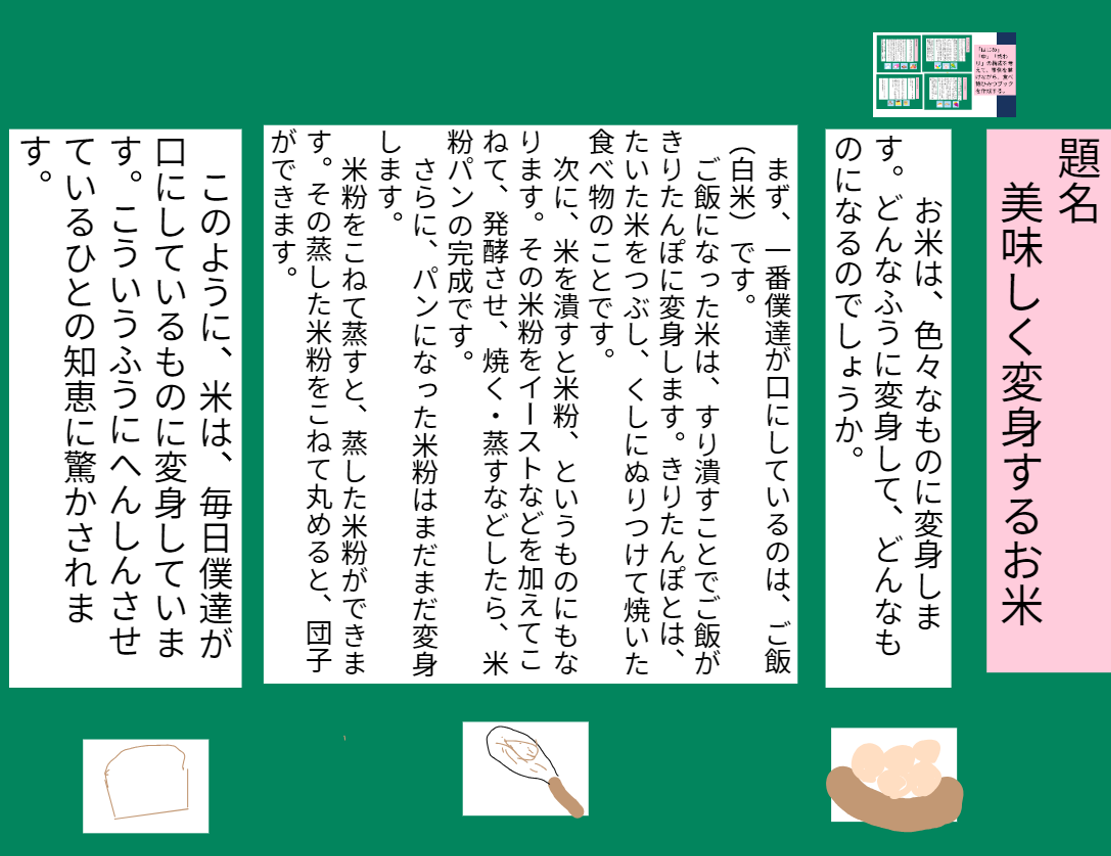 題名
美味しく変身するお米
お米は、色々なものに変身しま
す。どんなふうに変身して、どんなも
のになるのでしょうか。
まず、一番僕達が口にしているのは、ご飯
（白米）です。
ご飯になった米は、すり潰すことでご飯が
きりたんぽに変身します。きりたんぽとは、
たいた米をつぶし、くしにぬりつけて焼いた
食べ物のことです。
次に、米を潰すと米粉、というものにもな
ります。その米粉をイーストなどを加えてこ
ねて、発酵させ、焼く・蒸すなどしたら、米
粉パンの完成です。
さらに、パンになった米粉はまだまだ変身
します。
米粉をこねて蒸すと、蒸した米粉ができま
す。その蒸した米粉をこねて丸めると、団子
ができます。
このように、米は、毎日僕達が
口にしているものに変身していま
す。こういうふうにへんしんさせ
ているひとの知恵に驚かされま
す。